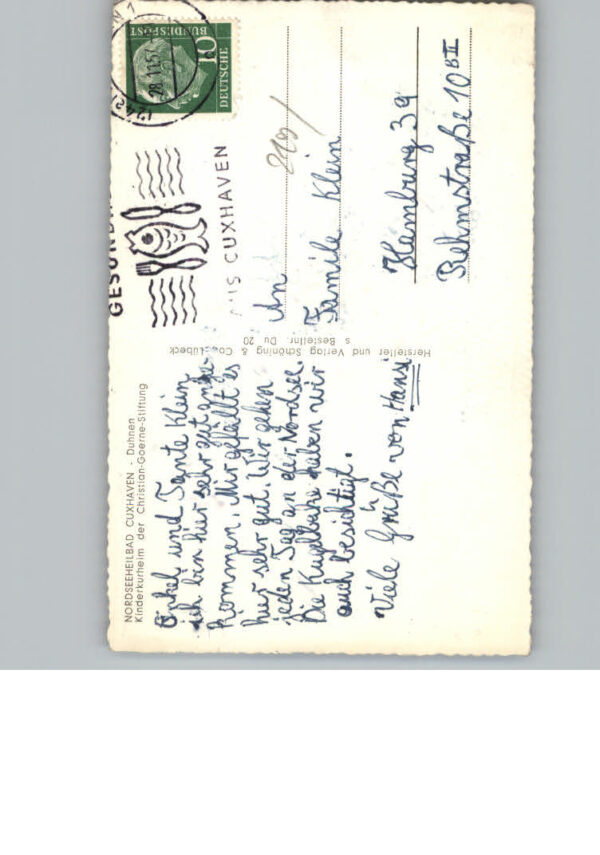 NORDSEEHEILBAD CUXHAVEN - Duhnen
Kinderkurheim der Christian-Goerne-Stiftung
Onkel und Tante Klein
ich bin hier sehr gut ange-
kommen. Mir gefällt es
hier sehr gut. Wir gehen
jeden Tag an der Nordsee.
Die Kugelbake haben wir
auch besichtigt.
Viele Grüße von Hansi
Hersteller und Verlag Schöning & Co., Lübeck
s Bestellnr. Du 20
DEUTSCHE
BUNDESPOST
10
28.11.57
AUS CUXHAVEN
An
Familie Klein
Hamburg 39
Behmstraße 10 BII